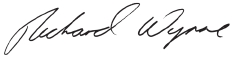 Richard Wynne